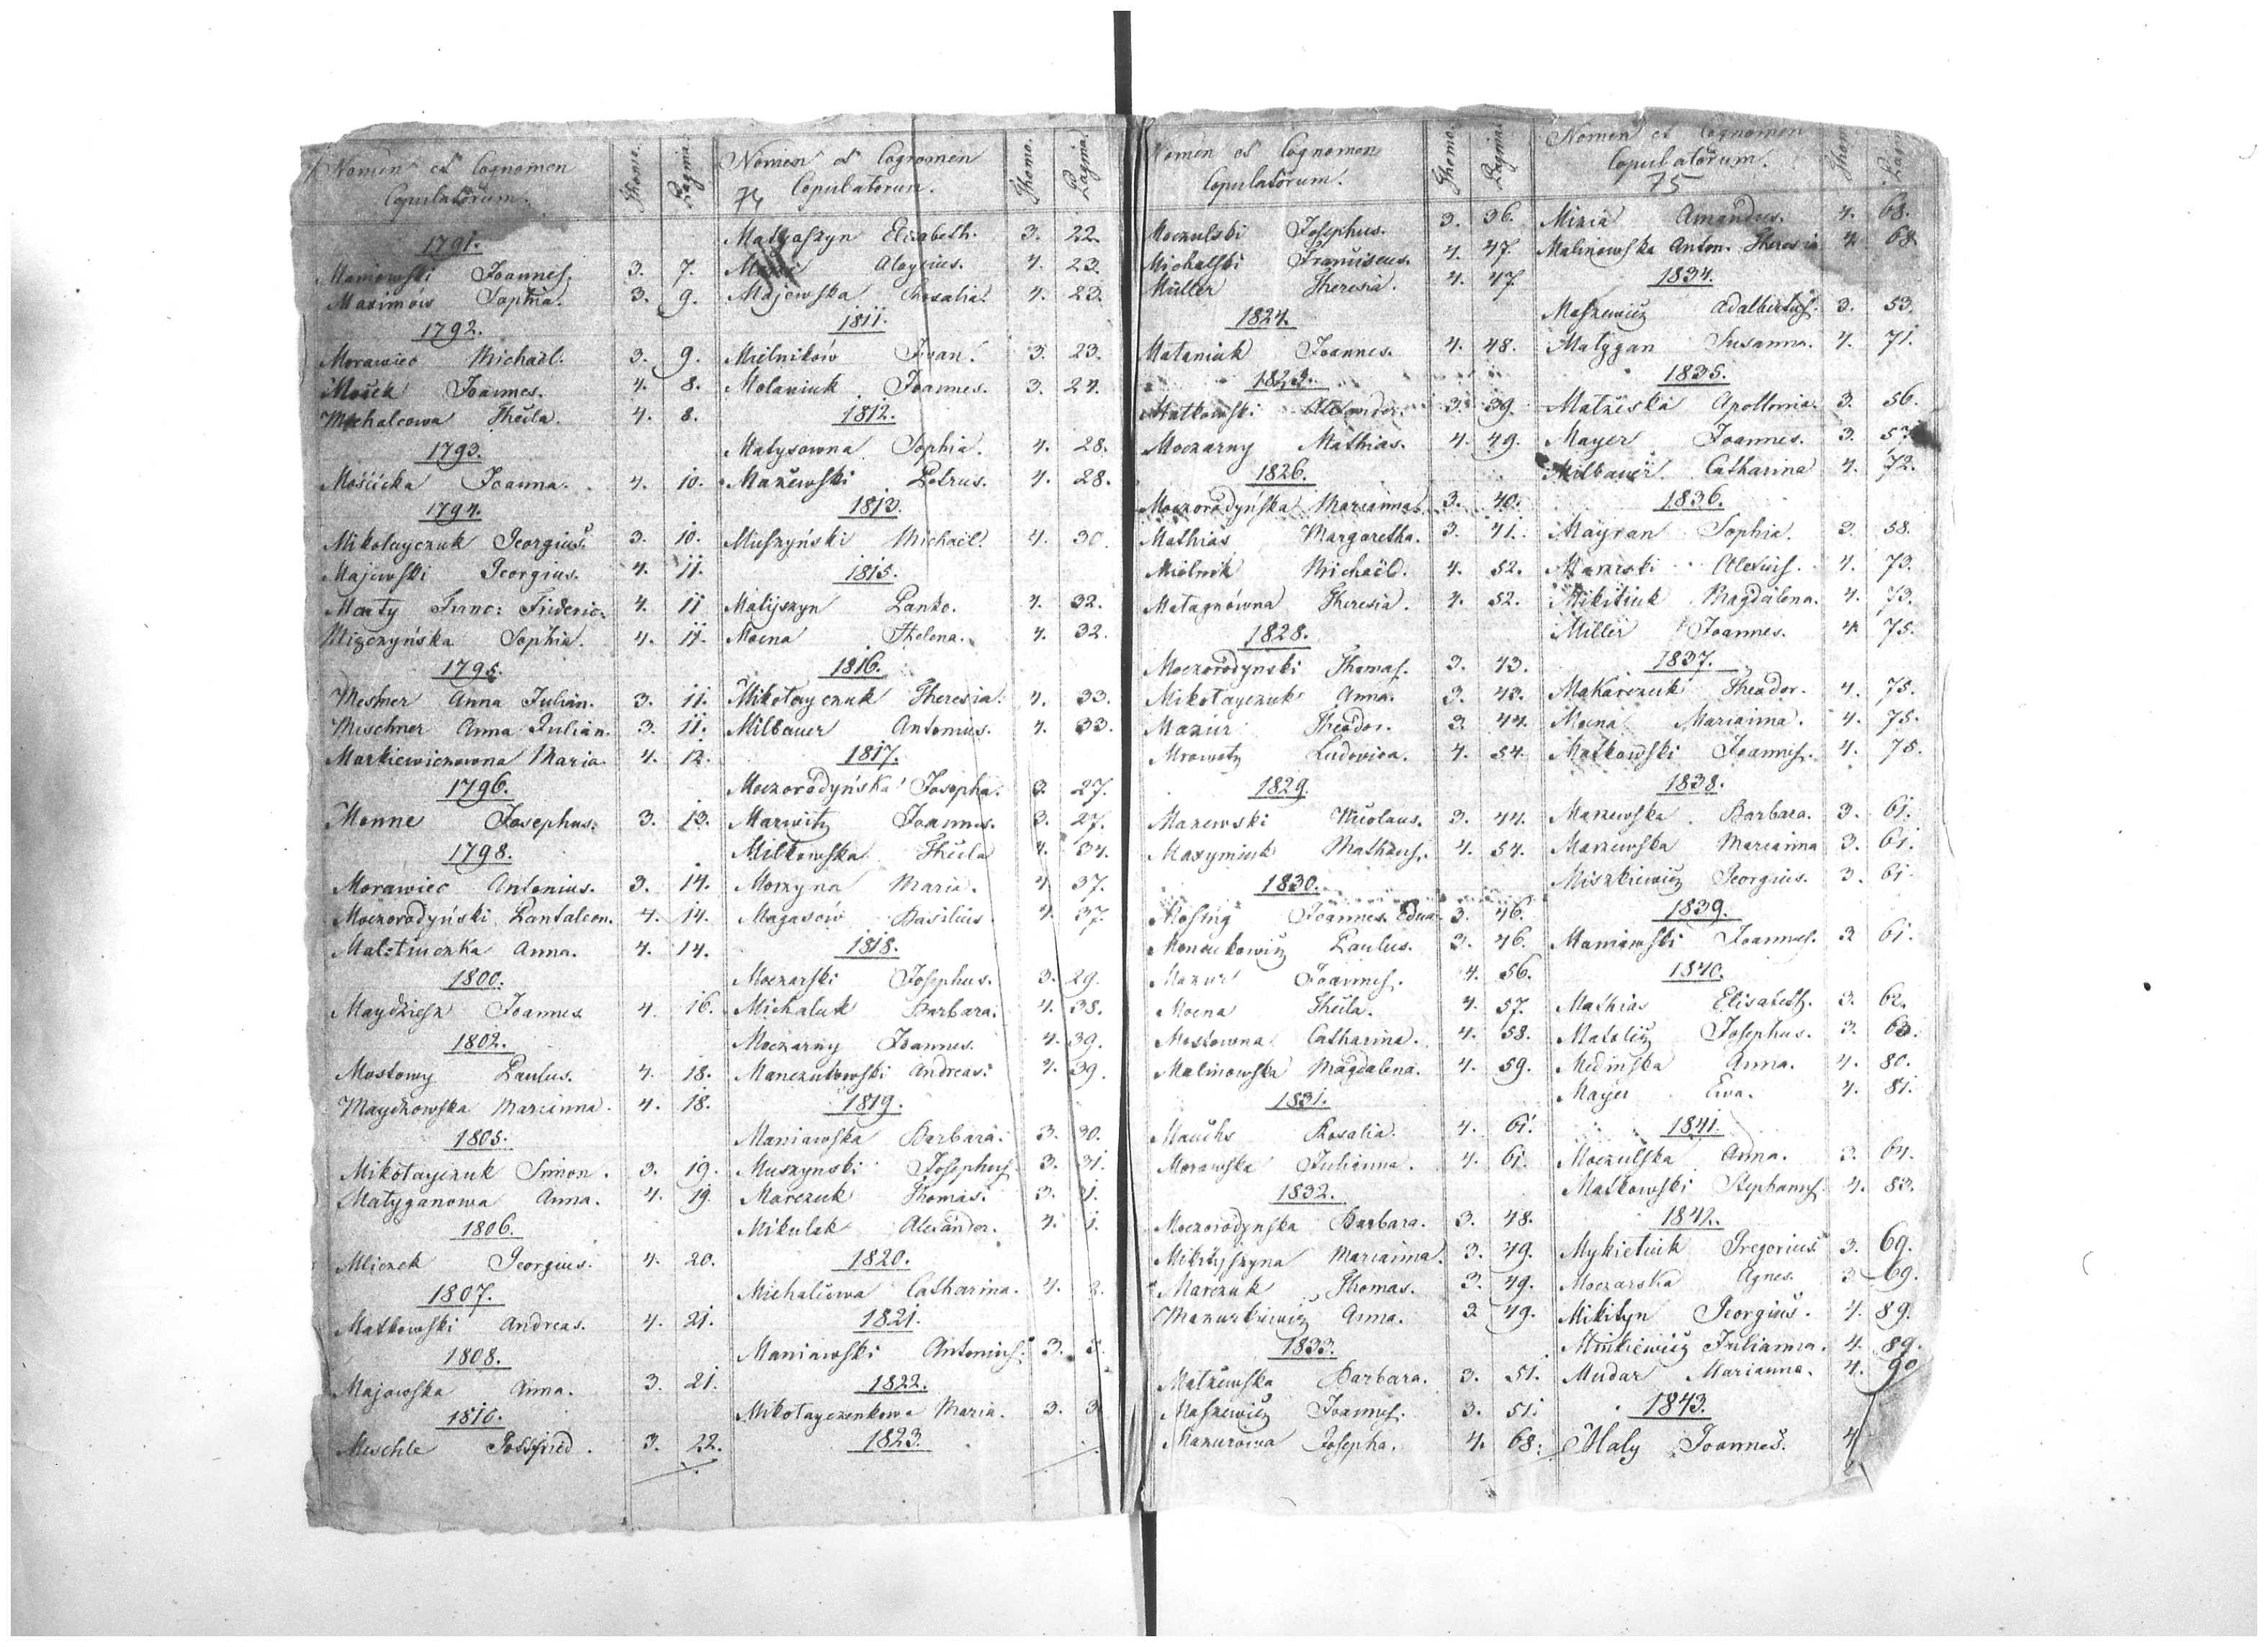 Nomen et Cognomen
Copulatorum.
Thomo.
Pagina.
1791.
Maniowski Joannes. 3. 7.
Maximów Sophia. 3. 9.
1792.
Morawiec Michaël. 3. 9.
Joannes. 4. 8.
Michalcowa Thecla. 4. 8.
1793.
Mościcka Joanna. 4. 10.
1794.
Mikołayczuk Georgius. 3. 10.
Majewski Georgius. 4. 11.
Franc: Frideric: 4. 11
Miączyńska Sophia. 4. 11.
1795.
Mesmer Anna Julian. 3. 11.
Meschner Anna Julian. 3. 11.
Markiewiczowna Maria. 4. 12.
1796.
Monne Josephus. 3. 13.
1798.
Morawiec Antonius. 3. 14.
Moczorodyński Pantaleon. 4. 14.
Anna. 4. 14.
1800.
Joannes 4. 16.
1802.
Mostowy Paulus. 4. 18.
Maydzowska Marianna. 4. 18.
1805.
Mikołayczuk Simon. 3. 19.
Matyganowa Anna. 4. 19.
1806.
Mliczek Georgius. 4. 20.
1807.
Matkowski Andreas. 4. 21.
1808.
Majewska Anna. 3. 21.
1810.
Meschle Gottfried. 3. 22.
Nomen et Cognomen
74 Copulatorum.
Thomo.
Pagina.
Matyaszyn Elisabeth. 3. 22.
Aloysius. 4. 23.
Majewska Rosalia. 4. 23.
1811.
Mielników Iwan. 3. 23.
Molaniuk Joannes. 3. 24.
1812.
Matysowna Sophia. 4. 28.
Mazewski Petrus. 4. 28.
1813.
Muszyński Michaël. 4. 30.
1815.
Matijszyn Panko. 4. 32.
Mocna Helena. 4. 32.
1816.
Mikołayczuk Theresia. 4. 33.
Milbauer Antonius. 4. 33.
1817.
Moczorodyńska Josepha. 3. 27.
Marwitz Joannes. 3. 27.
Miłkowska Thecla 4. 34.
Moczyna Maria. 4. 37.
Magasów Basilius 4. 37
1818.
Moczarski Josephus. 3. 29.
Michaluk Barbara. 4. 38.
Moczarny Joannes. 4. 39.
Manczukowski Andreas. 4. 39.
1819.
Maniawska Barbara. 3. 30.
Muszynski Josephus 3. 31.
Marczuk Thomas. 3.
Mikulak Alexander. 4.
1820.
Michalcowa Catharina. 4.
1821.
Maniawski Antonius. 3.
1822.
Mikołayczenkowa Maria. 3. 3
1823.
Nomen et Cognomen
Copulatorum.
Thomo.
Pagina.
Moczulski Josephus. 3. 36.
Michalski Franciscus. 4. 47.
Müller Theresia. 4. 47.
1824.
Mataniuk Joannes. 4. 48.
Matkowski Alexander. 3. 39.
Moczarny Mathias. 4. 49.
1826.
Moczorodyńska Marianna. 3. 40.
Mathias Margaretha. 3. 41.
Mielnik Michaël. 4. 52.
Matagnówna Theresia. 4. 52.
1828.
Moczorodynski Thomas. 3. 43.
Mikołayczuk Anna. 3. 43.
Mazur Theodor. 3. 44.
Ludovica. 4. 54.
1829.
Mazewski Nicolaus. 3. 44.
Maxymiuk Matheus. 4. 54.
1830.
Mosing Joannes Edua 3. 46.
Paulus. 3. 46.
Mazur Joannes. 4. 56.
Mocna Thecla. 4. 57.
Mostowna Catharina. 4. 58.
Malinowska Magdalena. 4. 59.
1831.
Rosalia. 4. 61.
Morawska Julianna. 4. 61.
1832.
Moczorodynska Barbara. 3. 48.
Mikityszyna Marianna. 3. 49.
Marczuk Thomas. 3. 49.
Mazurkiewicz Anna. 3 49.
1833.
Barbara. 3. 51.
Maszewicz Joannes. 3. 51.
Mazurowa Josepha. 4. 68.
Nomen et Cognomen
Copulatorum.
75
Amandus. 4. 68.
Malinowska Anton. Theresia 4. 68.
1834.
Maszewicz Adalbertus. 3. 53.
Matygan Susanna. 4. 71.
1835.
Apollonia. 3. 56.
Mayer Joannes. 3. 57
Milbauer Catharina 4. 72.
1836.
Mayran Sophia. 3. 58.
Alexius. 4. 73.
Mikitiuk Magdalena. 4. 73.
Miller Joannes. 4 75.
1837.
Makarczuk Theodor. 4. 75.
Mocna Marianna. 4. 75.
Matkowski Joannes. 4. 75.
1838.
Barbara. 3. 61.
Marianna 3. 61.
Miszkiewicz Georgius. 3. 61.
1839.
Maniawski Joannes. 3 61.
1840.
Mathias Elisabeth. 3. 62.
Josephus. 3. 63.
Medinska Anna. 4. 80.
Mayer Ewa. 4. 81.
1841.
Moczulska Anna. 3. 64.
Matkowski Stephanus. 4. 83.
1842.
Mykietiuk Gregorius 3. 69.
Moczarska Agnes. 3 69.
Mikityn Georgius. 4. 89.
Julianna. 4. 89.
Mudar Marianna. 4. 90
1843.
Maly Joannes. 4